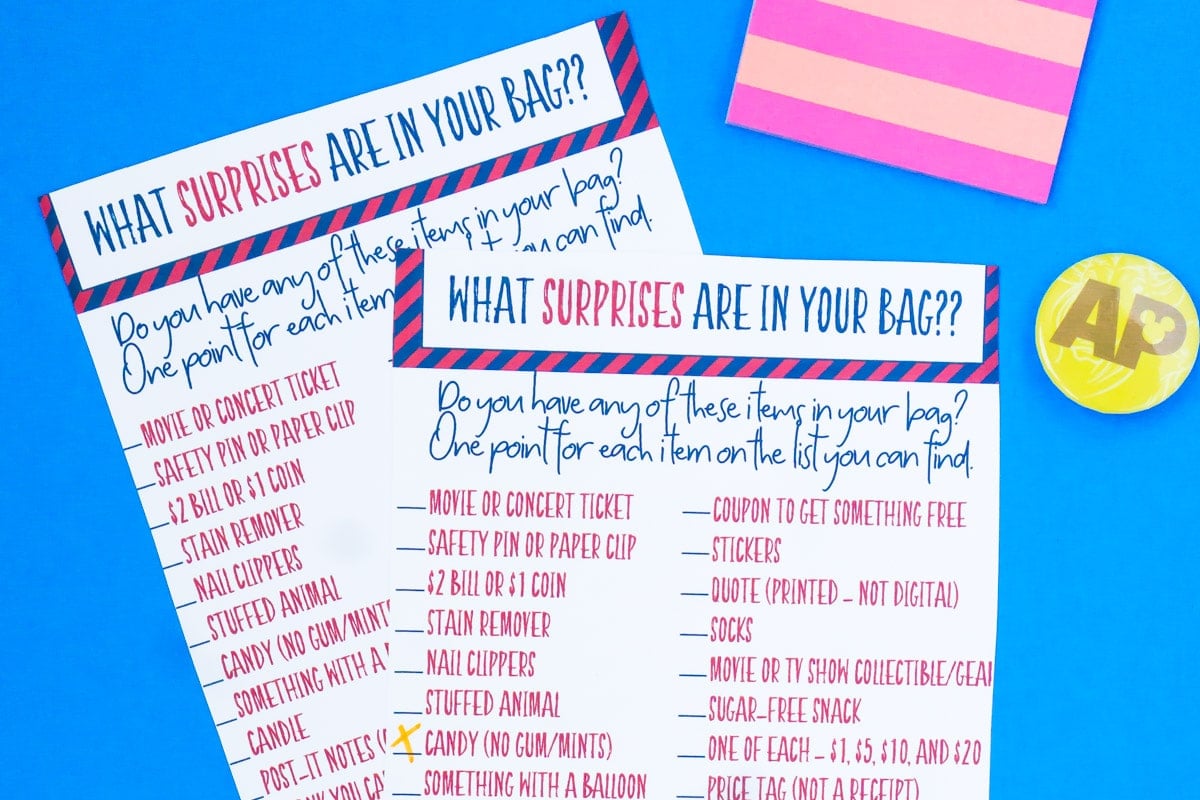 WHAT SURPRISES ARE IN YOUR BAG??
Do you have any of these items in your bag?
One point for each item
MOVIE OR CONCERT TICKET
SAFETY PIN OR PAPER CLIP
$2 BILL OR $1 COIN
STAIN REMOVER
NAIL CLIPPERS
STUFFED ANIMAL
CANDY (NO GUM/MINT
SOMETHING WITH A
CANDLE
POST-IT NOTES
YOU CA
you can find.
WHAT SURPRISES ARE IN YOUR BAG??
Do you have any of these items in your bag?
One point for each item on the list you can find.
MOVIE OR CONCERT TICKET
SAFETY PIN OR PAPER CLIP
$2 BILL OR $1 COIN
STAIN REMOVER
NAIL CLIPPERS
STUFFED ANIMAL
X CANDY (NO GUM/MINTS)
SOMETHING WITH A BALLOON
COUPON TO GET SOMETHING FREE
STICKERS
QUOTE (PRINTED - NOT DIGITAL)
SOCKS
MOVIE OR TV SHOW COLLECTIBLE/GEAR
SUGAR-FREE SNACK
ONE OF EACH - $1, $5, $10, AND $20
PRICE TAG (NOT A RECEIPT)
AP